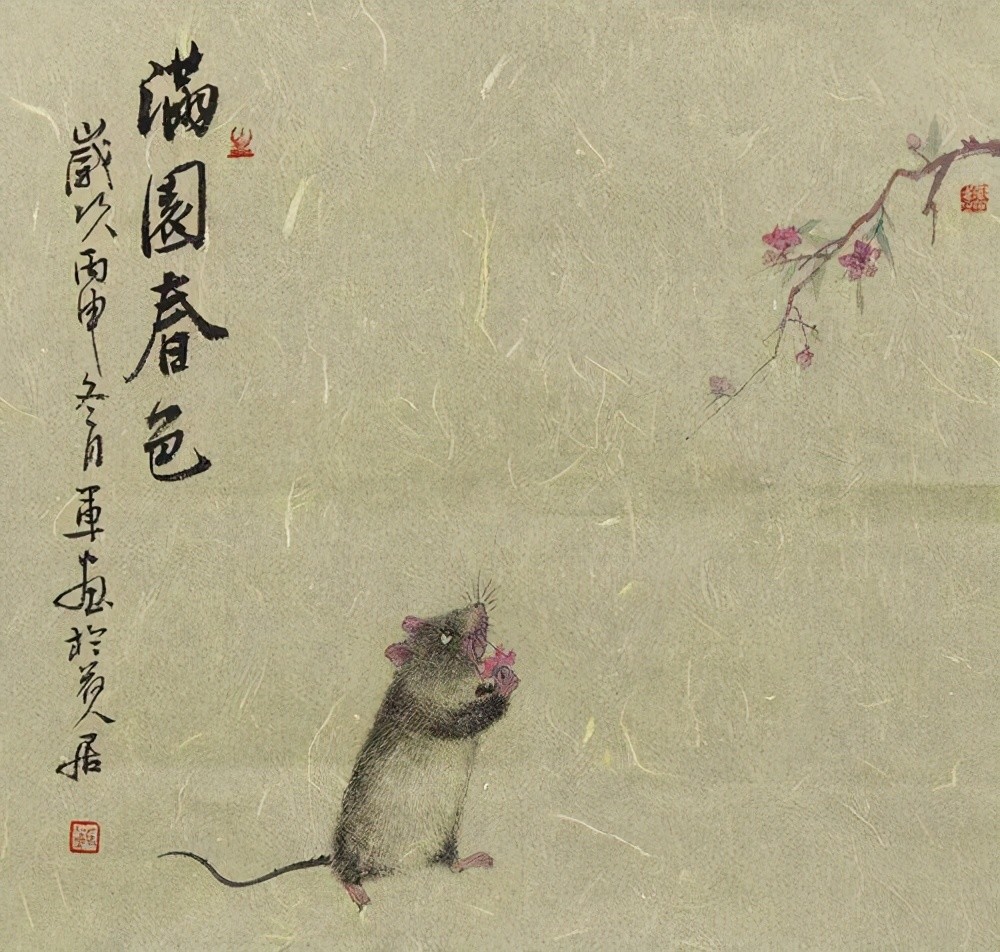 满園春色
歲次丙申冬月軍画於
居